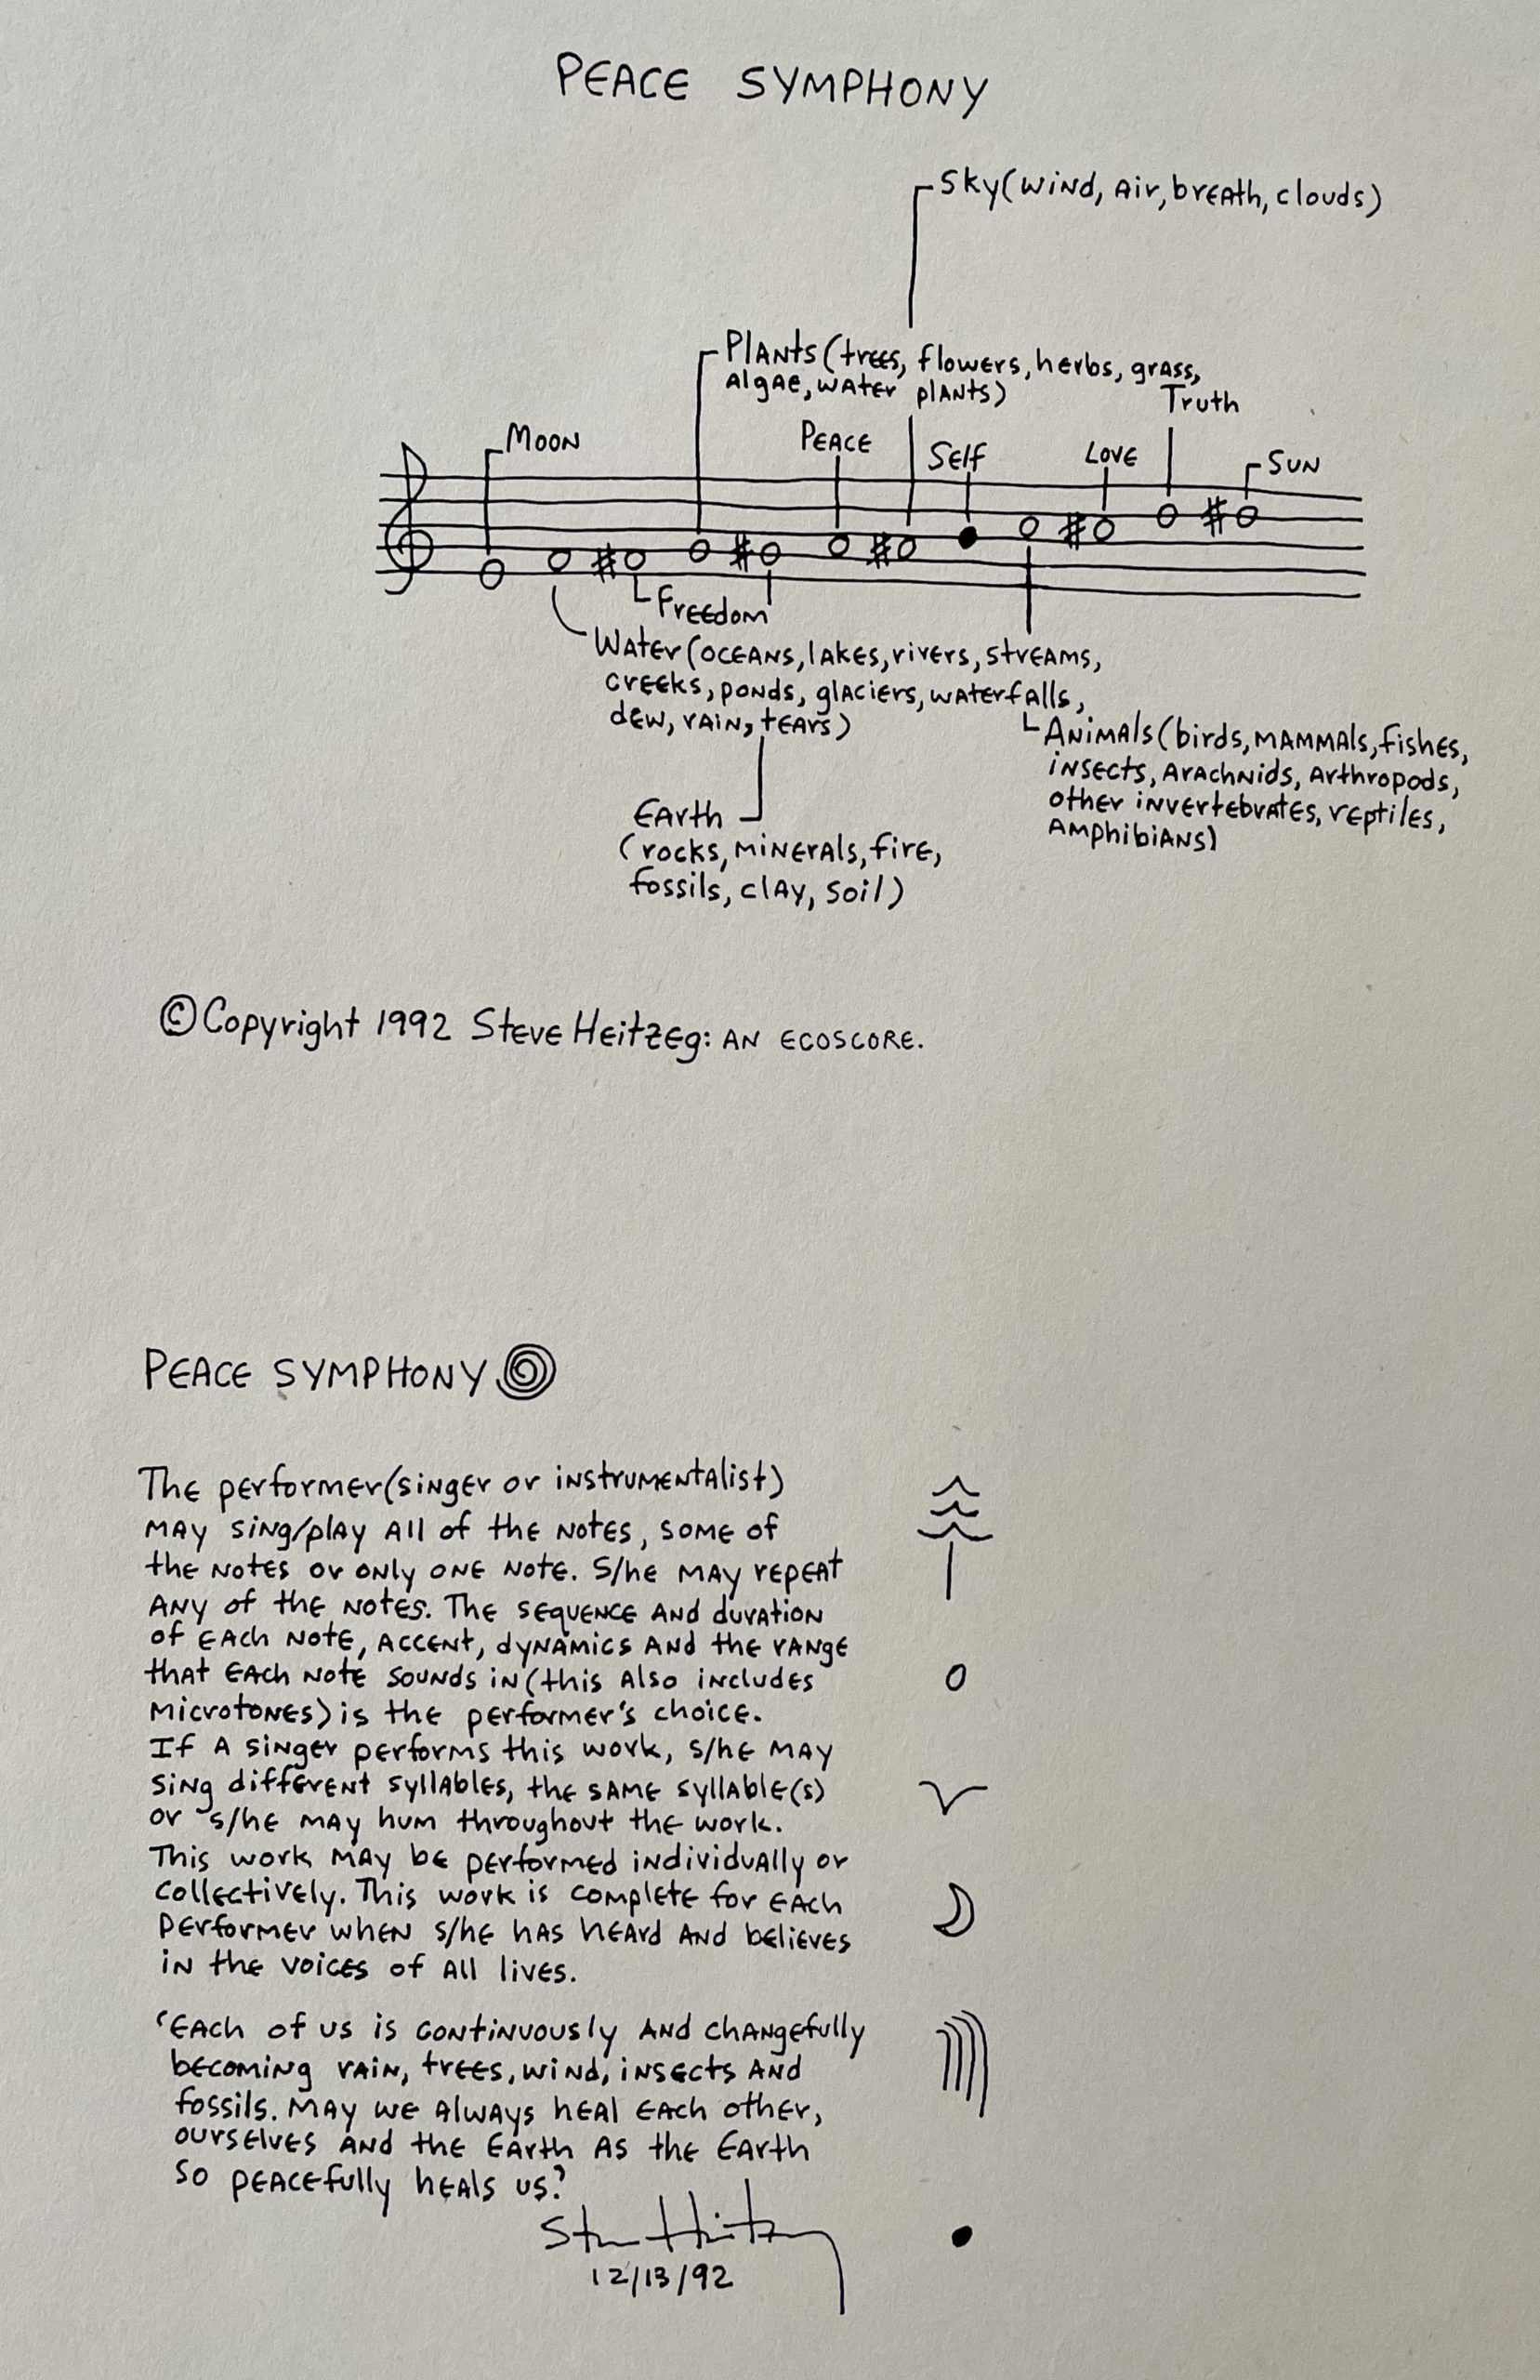 PEACE SYMPHONY
Sky (wind, air, breath, clouds)
Plants (trees, flowers, herbs, grass,
algae, water plants)
Truth
Moon
Peace
Self
Love
Sun
Freedom
Water (oceans, lakes, rivers, streams,
creeks, ponds, glaciers, waterfalls,
dew, rain, tears)
Animals (birds, mammals, fishes,
insects, arachnids, arthropods,
other invertebrates, reptiles,
amphibians)
Earth
(rocks, minerals, fire,
fossils, clay, soil)
©Copyright 1992 Steve Heitzeg: AN ECOSCORE.
PEACE SYMPHONY
The performer (singer or instrumentalist)
may sing/play all of the notes, some of
the notes or only one note. S/he may repeat
any of the notes. The sequence and duration
of each note, accent, dynamics and the range
that each note sounds in (this also includes
microtones) is the performer's choice.
If a singer performs this work, s/he may
sing different syllables, the same syllable(s)
or s/he may hum throughout the work.
This work may be performed individually or
collectively. This work is complete for each
performer when s/he has heard and believes
in the voices of all lives.
'Each of us is continuously and changefully
becoming rain, trees, wind, insects and
fossils. May we always heal each other,
ourselves and the Earth as the Earth
so peacefully heals us.'
Steve Heitzeg
12/13/92